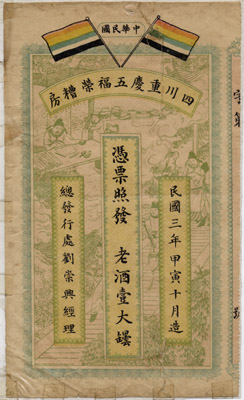 中華民國
四川重慶五福榮糟房
民國三年甲寅十月造
憑票照發 老酒壹大罎
總發行處劉崇興經理